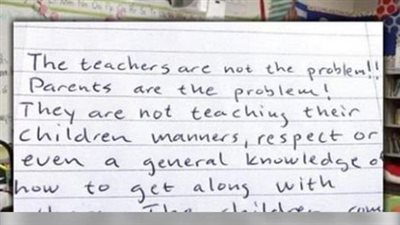 The teachers are not the problem!!
Parents are the problem!
They are not teaching their
children manners, respect or
even a general knowledge of
how to get along with
The children